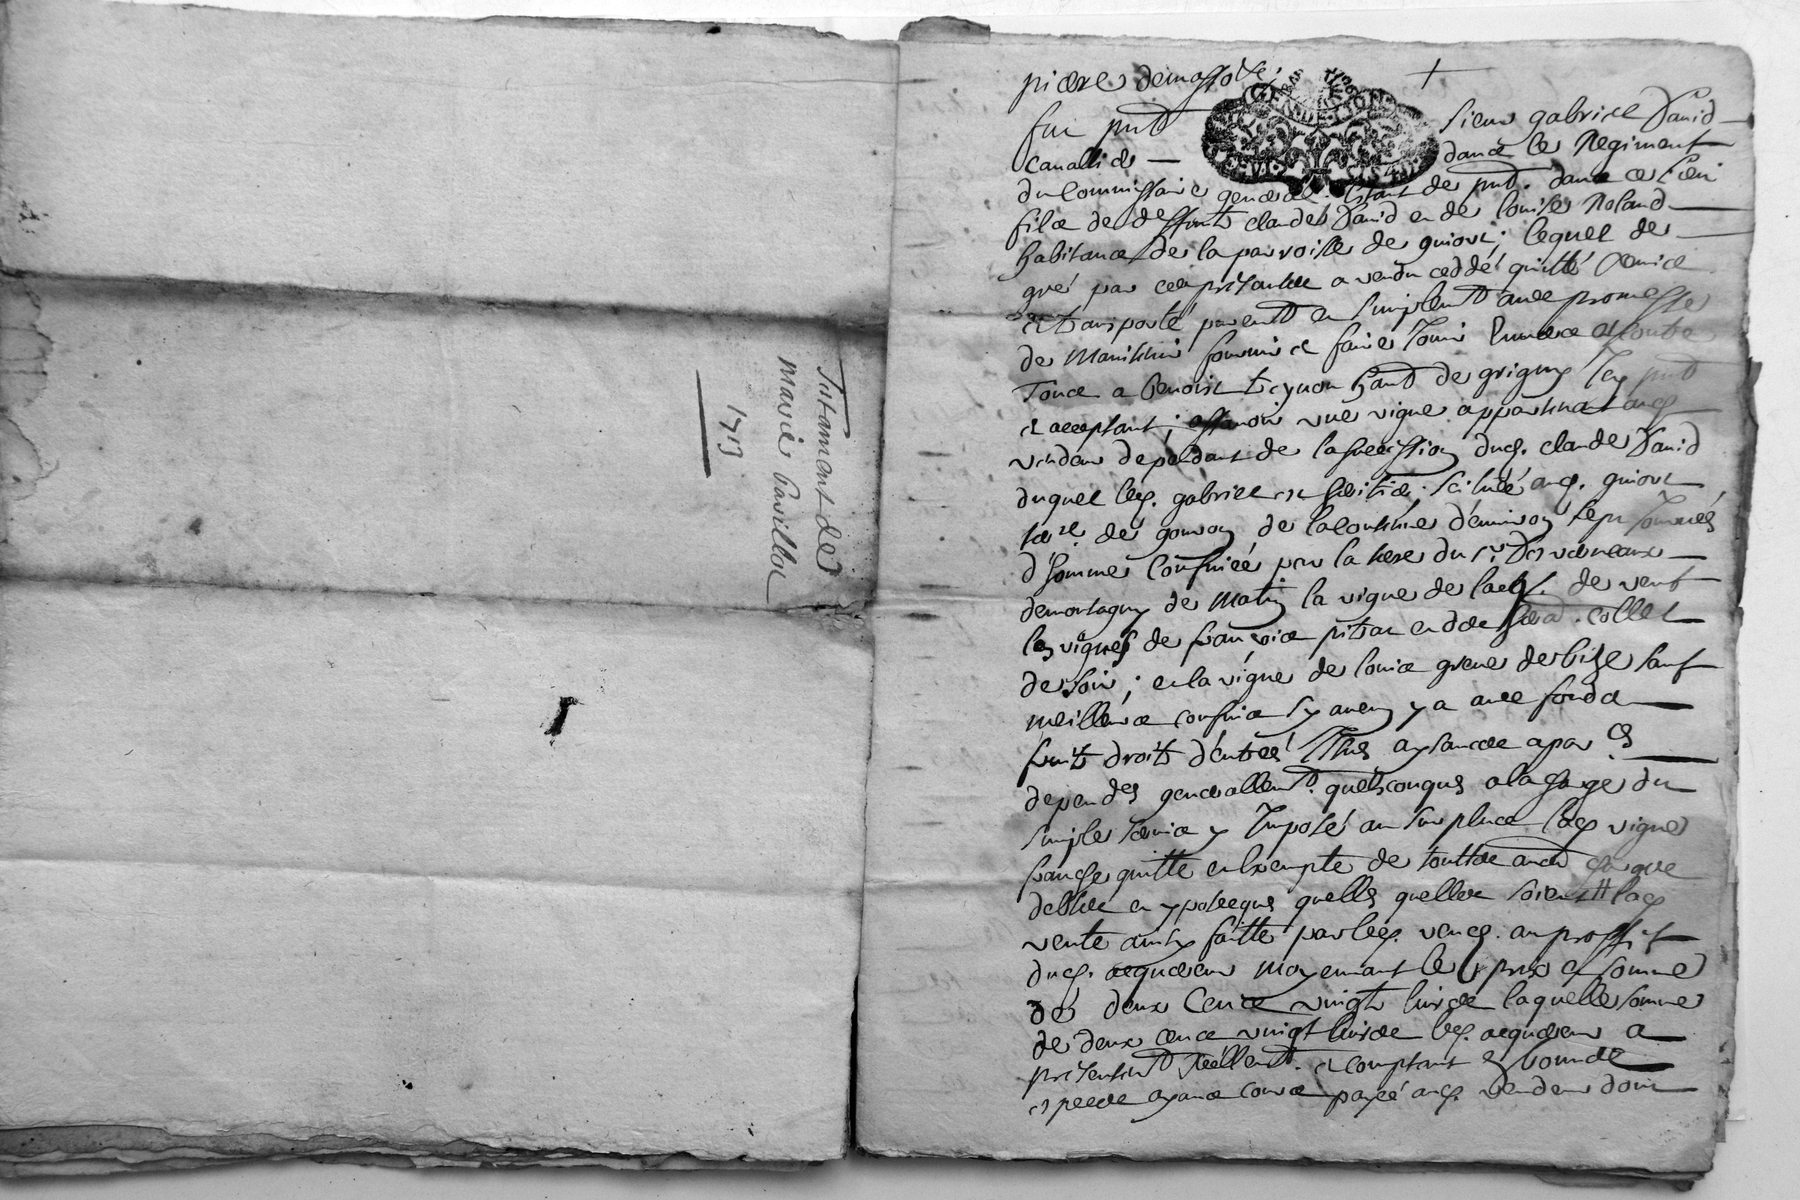 Testament de
Marie Pavillon
1713
pierre demassotte;
fut pnt sieur gabriel David
cavallier dans le Regiment
du Commissaire general. Estant de pnt. dans ce lieu
filz de deffunt claude David et de louise Roland
habitans de la parroisse de guiort; lequel de
gré par ces presentes a vendu ceddé quitté remis
et transporté puremt et simplemt avec promesse
de Maintenir fournir et faire Jouir Envers et contre
Tous a benoist teynon habt de grigny Icy pnt
et acceptant; assavoir une vigne appartenant aud.
vendeur dependant de la succession dud. claude David
duquel led. gabriel est heritier; scituée aud. guiort
terre de gourou de la contenue d'environ sept Journées
d'hommes Confinée par la terre du sr.
de montagny de Matin la vigne de lad. de vent
les vignes de françois pitrat et de collet
de soir; et la vigne de louis grene de bize sauf
meilleurs confins sy aucun y a avec fonds
fruits droits d'entrées Issues aysances apar ces
dependces generallemt. quelsconques a la charge du
simple servis y Imposé au surplus lad. vigne
franche quitte et exempte de touttes autres charges
debtes et ypoteques quelles quelles soient lad.
vente ainsy faitte par led. vend. au proffit
dud. acquereur Moyennant le prix et somme
de deux Cens vingt livres laquelle somme
de deux cens vingt livres led. acquereur a
presentemt reellemt. et comptant en bonnes
especes ayans cours payée aud. vendeur dont